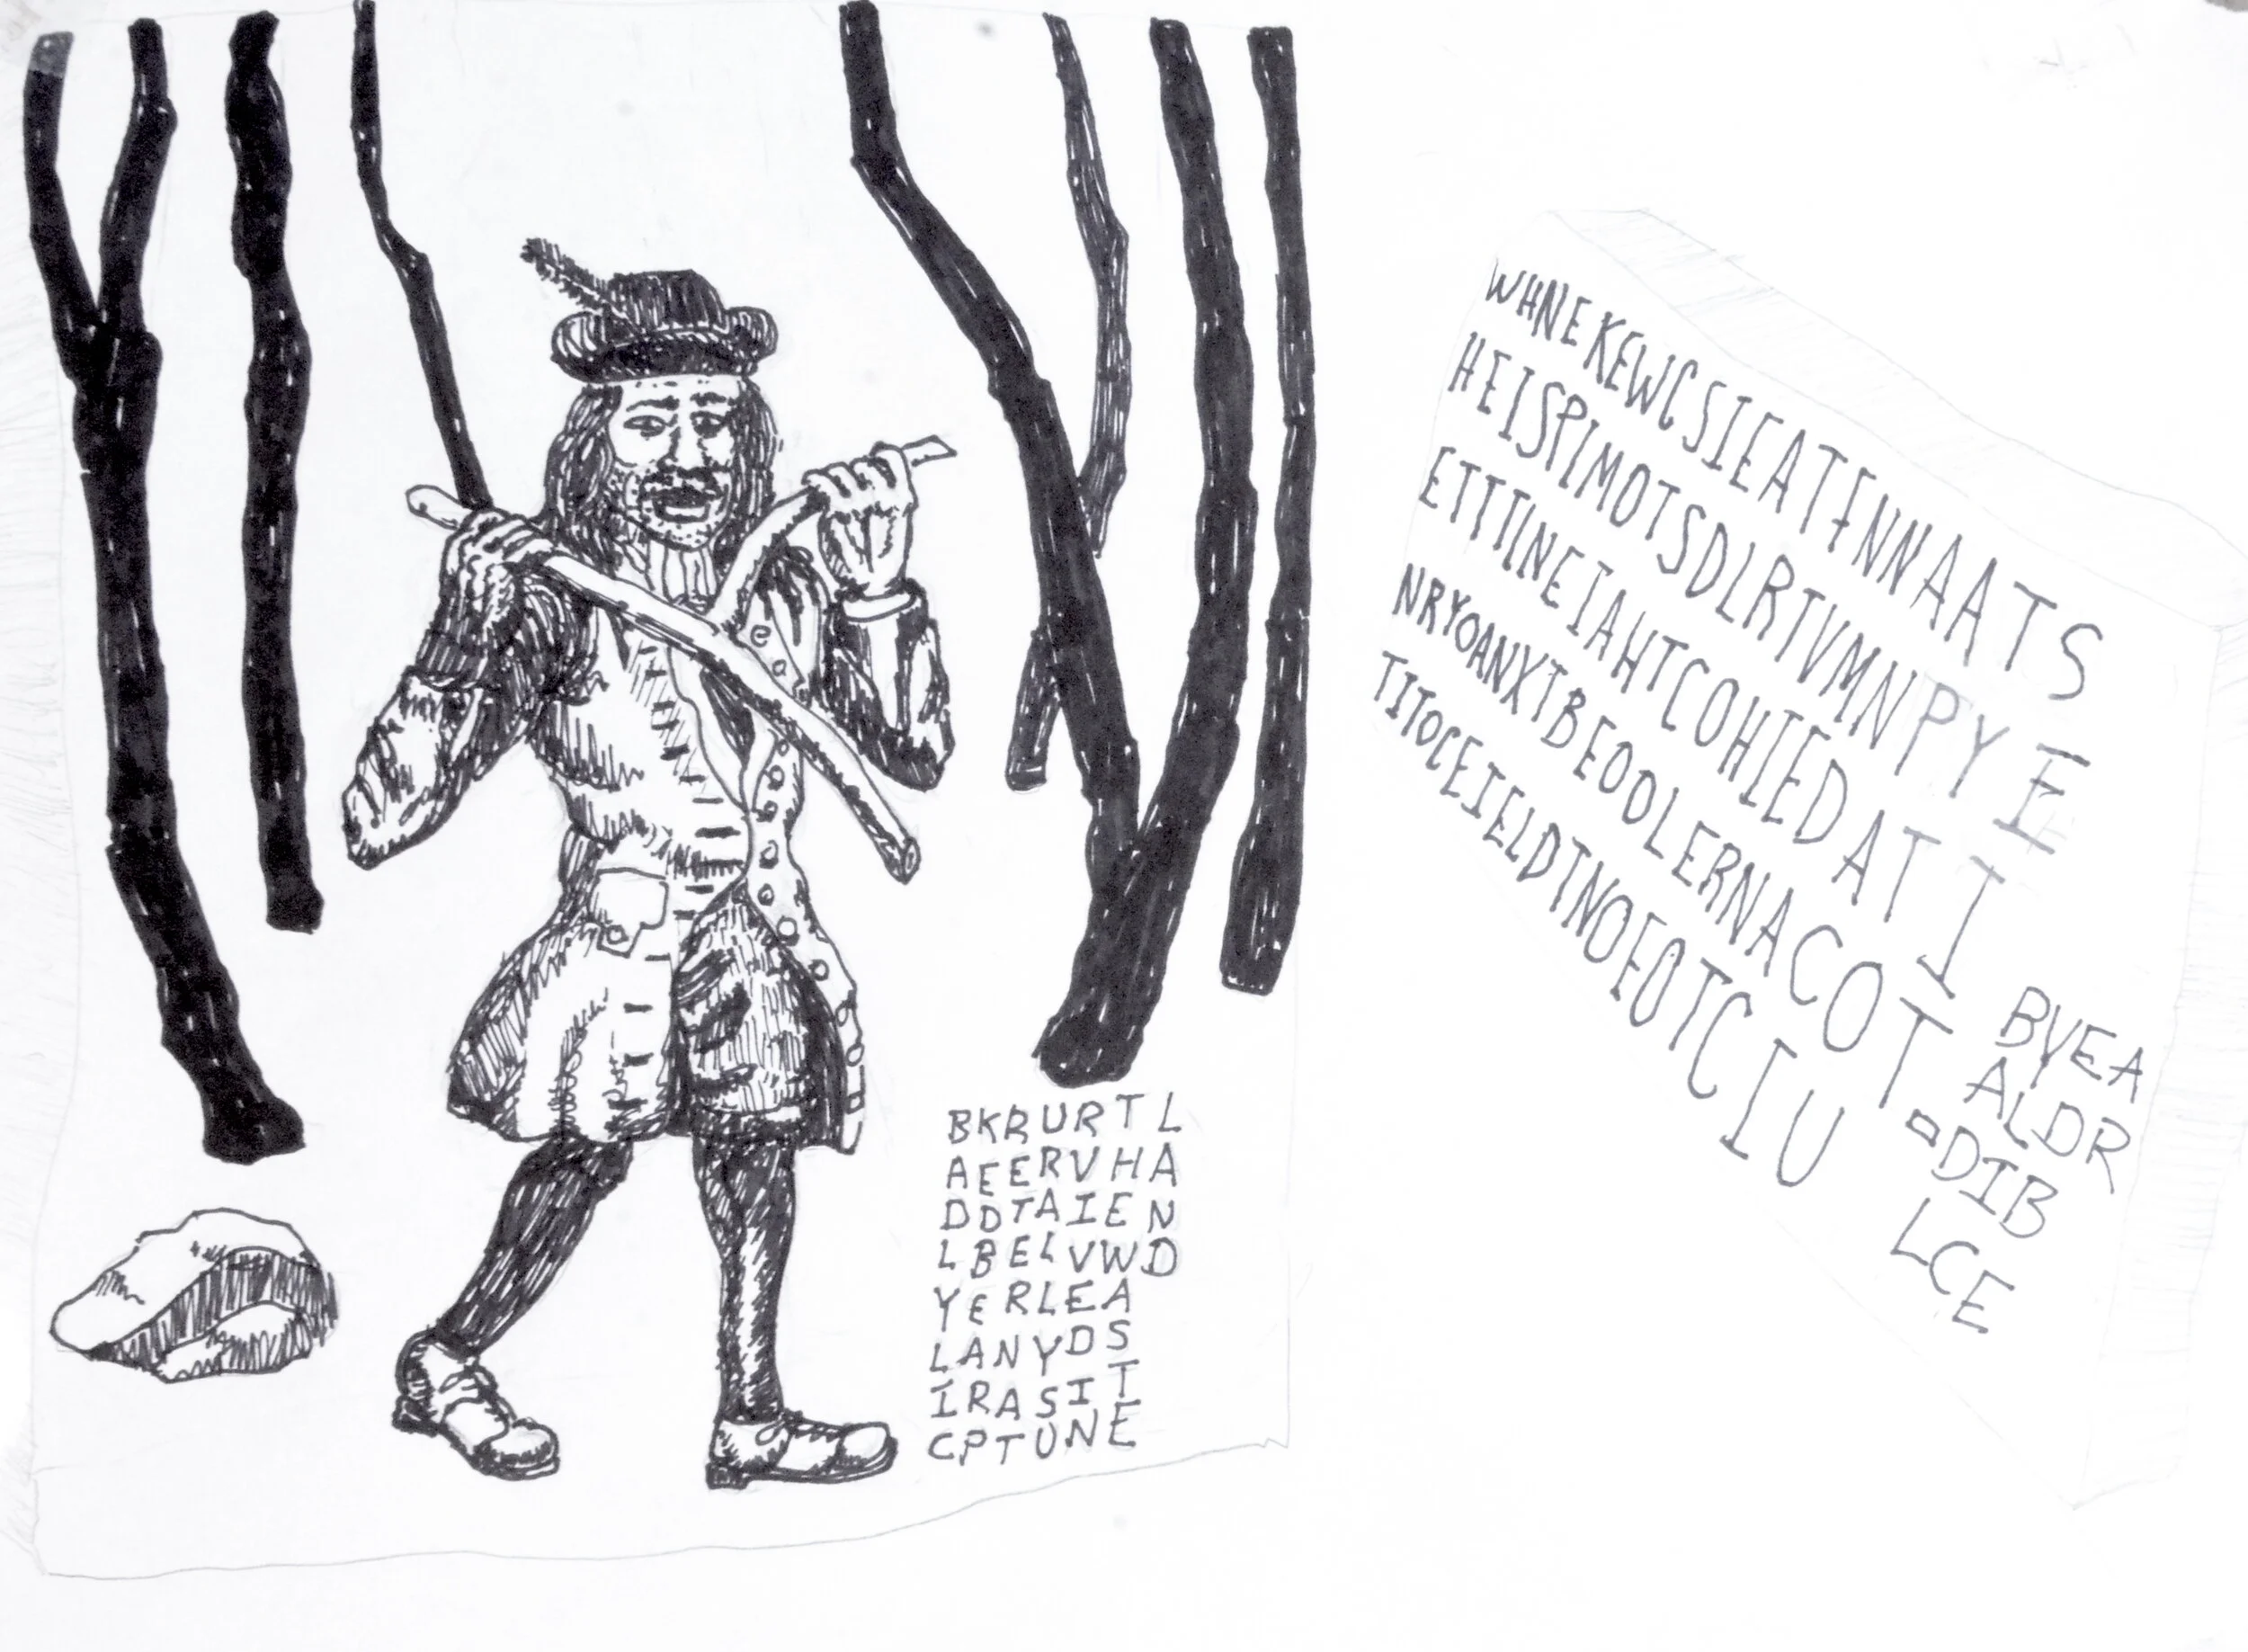 BKRURTL
AEERVHA
DDTAIEN
LBELVWD
YERLEA
LANYDS
IRASIT
CPTUNE
WHNEKEWCSIEATFNNAATS
HEISPIMOTSDLRTVMNPYE
ETTTINEIAHTCOHIEDATI
NRYOANXTBEOOLERNACOT
TITOCEIELDTNOFOTCIU
BVEA
ALDR
DIB
LCE